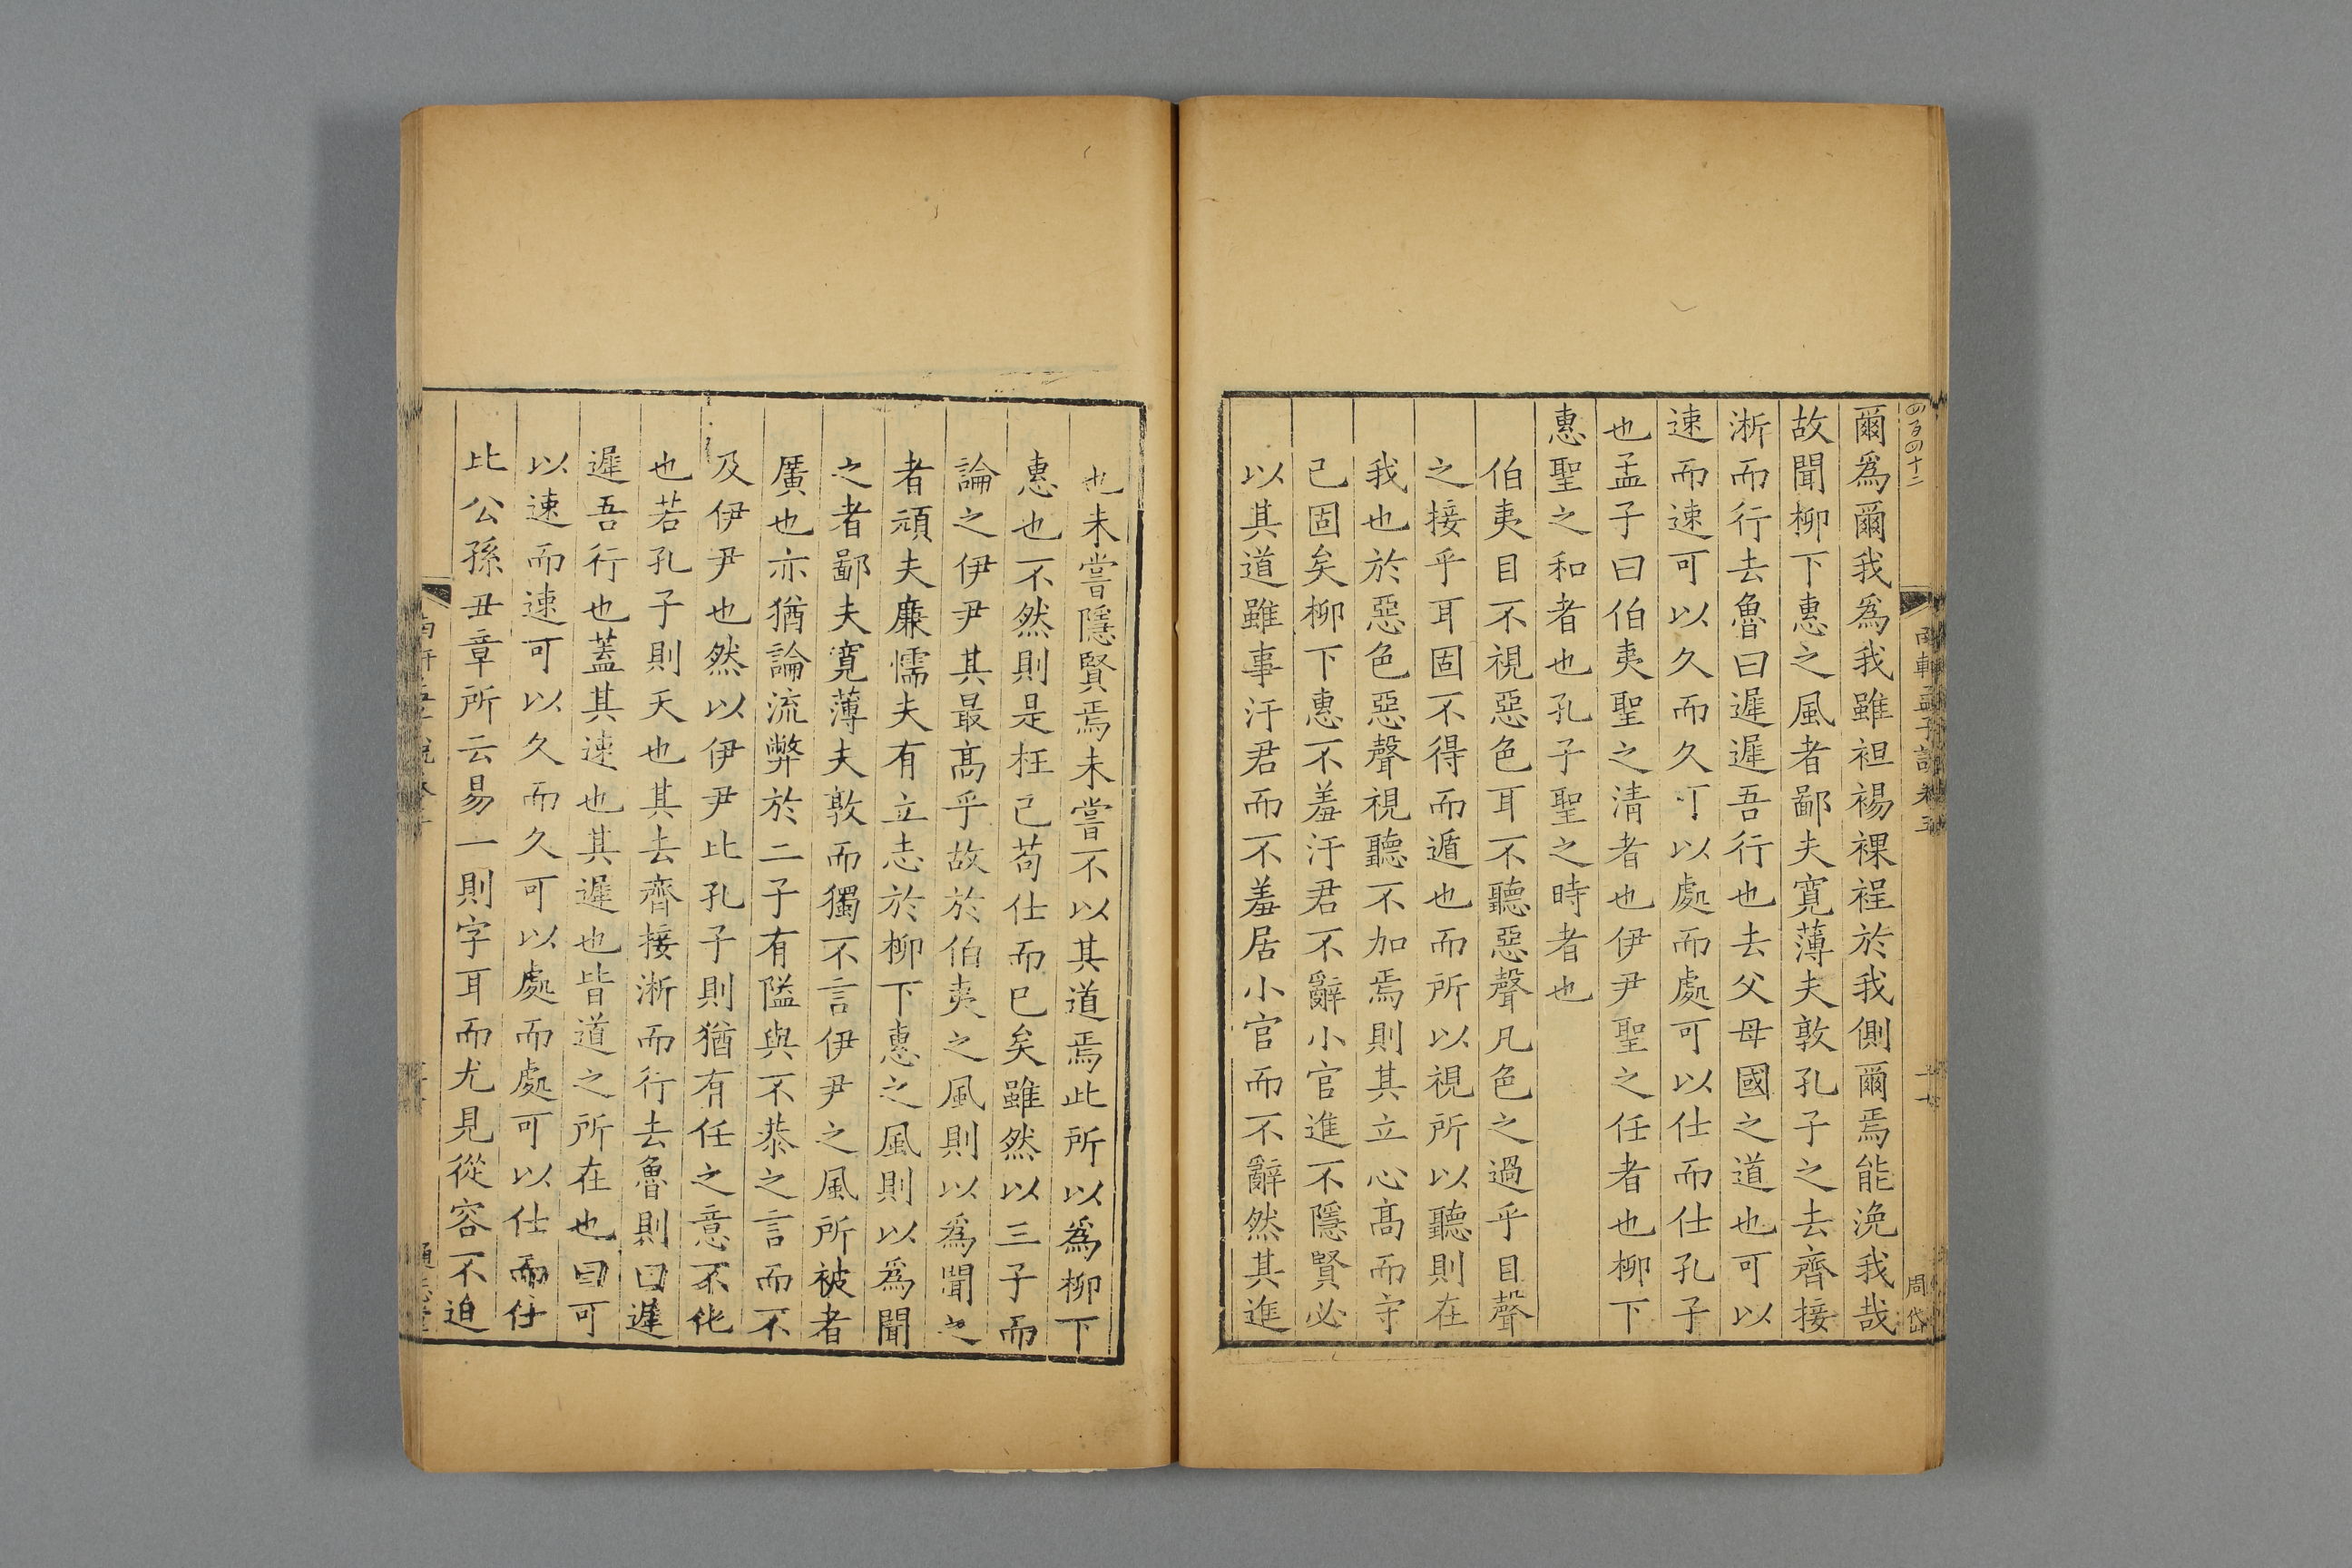 四百四十二
南軒孟子說卷五
周岱
爾爲爾我爲我雖袒裼裸裎於我側爾焉能浼我哉
故聞柳下惠之風者鄙夫寬薄夫敦孔子之去齊接
淅而行去魯曰遲遲吾行也去父母國之道也可以
速而速可以久而久可以處而處可以仕而仕孔子
也孟子曰伯夷聖之清者也伊尹聖之任者也柳下
惠聖之和者也孔子聖之時者也
伯夷目不視惡色耳不聽惡聲凡色之過乎目聲
之接乎耳固不得而遁也而所以視所以聽則在
我也於惡色惡聲視聽不加焉則其立心高而守
己固矣柳下惠不羞汙君不辭小官進不隱賢必
以其道雖事汙君而不羞居小官而不辭然其進
也未嘗隱賢焉未嘗不以其道焉此所以爲柳下
惠也不然則是枉己苟仕而已矣雖然以三子而
論之伊尹其最高乎故於伯夷之風則以爲聞之
者頑夫廉懦夫有立志於柳下惠之風則以爲聞
之者鄙夫寬薄夫敦而獨不言伊尹之風所被者
廣也亦猶論流弊於二子有隘與不恭之言而不
及伊尹也然以伊尹比孔子則猶有任之意不化
也若孔子則天也其去齊接淅而行去魯則曰遲
遲吾行也蓋其速也其遲也皆道之所在也曰可
以速而速可以久而久可以處而處可以仕而仕
比公孫丑章所云易一則字耳而尤見從容不迫